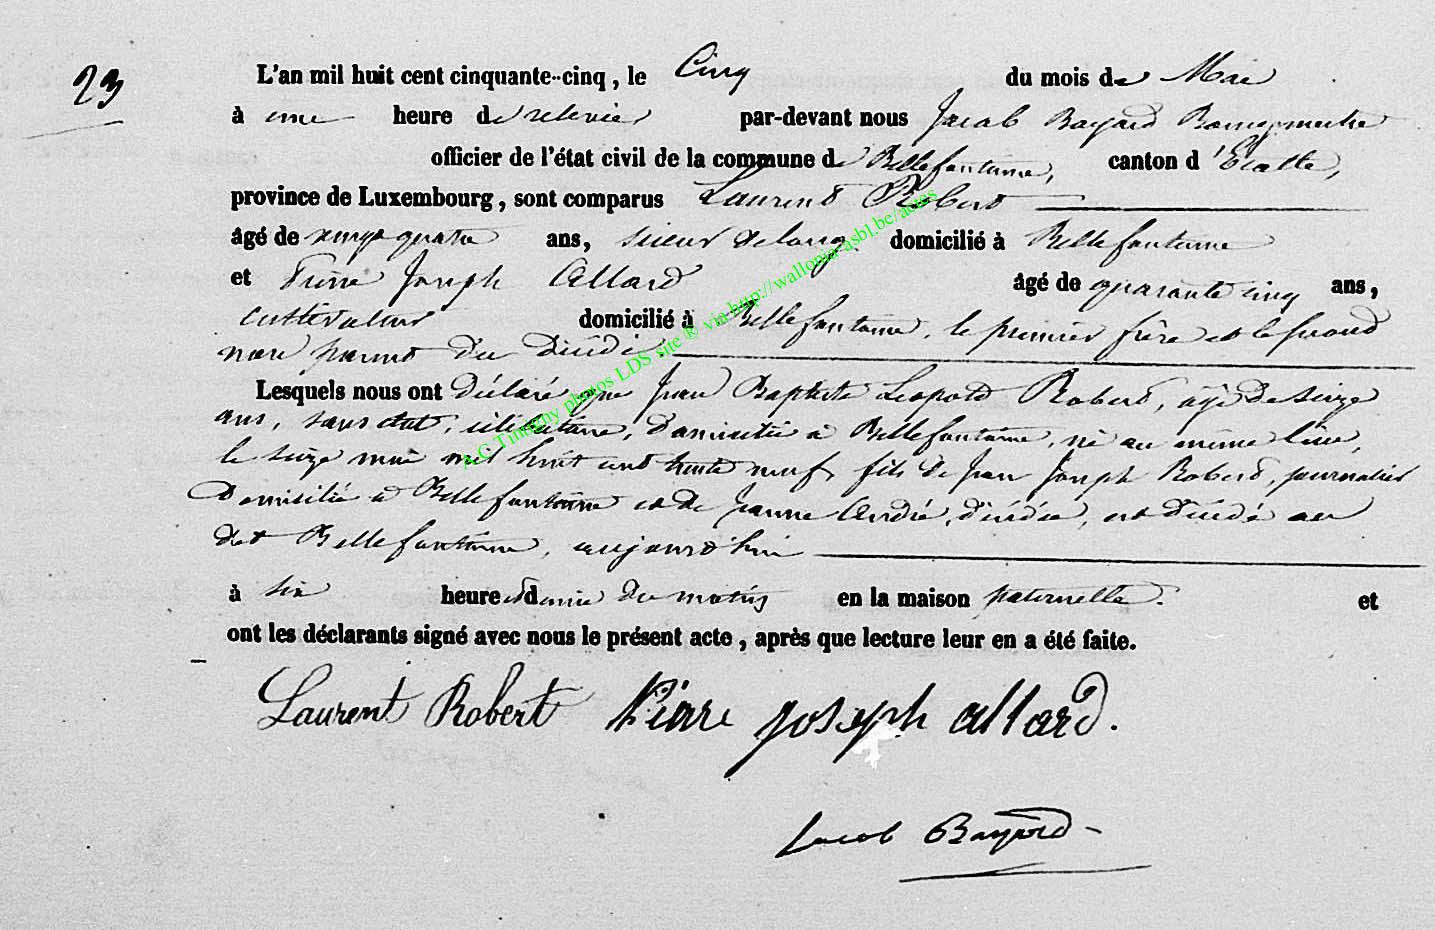 23
L'an mil huit cent cinquante-cinq, le Cinq du mois de Mai
à une heure de relevée par-devant nous Jacob Bayard Bourgmestre
officier de l'état civil de la commune de Bellefontaine, canton d'Etalle,
province de Luxembourg, sont comparus Laurent Robert
âgé de vingt quatre ans, scieur de long domicilié à Bellefontaine
et Pierre Joseph Allard âgé de quarante cinq ans,
cultivateur domicilié à Bellefontaine, le premier frère et le second
non parent du décédé
Lesquels nous ont déclaré que Jean Baptiste Léopold Robert, âgé de seize
ans, sans état, célibataire, domicilié à Bellefontaine, né au même lieu,
le seize mai mil huit cent trente neuf, fils de Jean Joseph Robert, journalier
domicilié à Bellefontaine et de Jeanne André, décédée, est décédé au
dit Bellefontaine, aujourd'hui
à six heure et demie du matin en la maison paternelle. et
ont les déclarants signé avec nous le présent acte, après que lecture leur en a été faite.
Laurent Robert Pierre joseph allard.
Jacob Bayard
Timothy photos LDS site ® via http://wallonia-asbl.be/actes